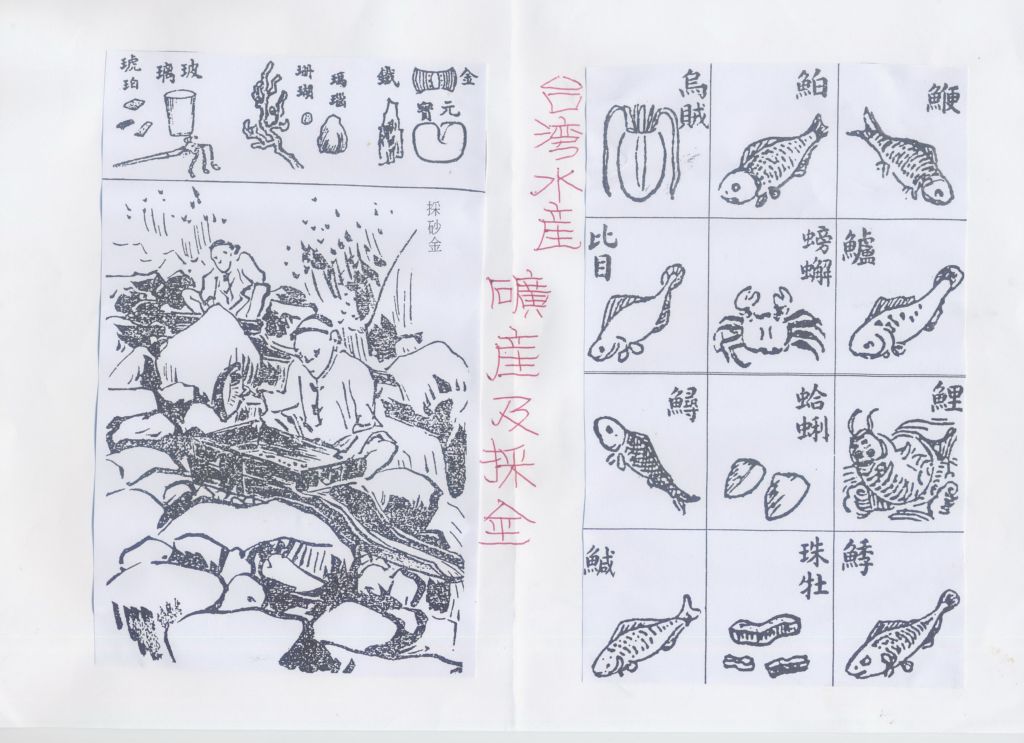 金
元寶
鐵
瑪瑙
珊瑚
玻璃
琥珀
採砂金
台湾水産
礦産及採金
鯾
鮊
烏賊
鱸
螃蠏
比目
鯉
蛤蜊
鱘
鯚
珠牡
鰔